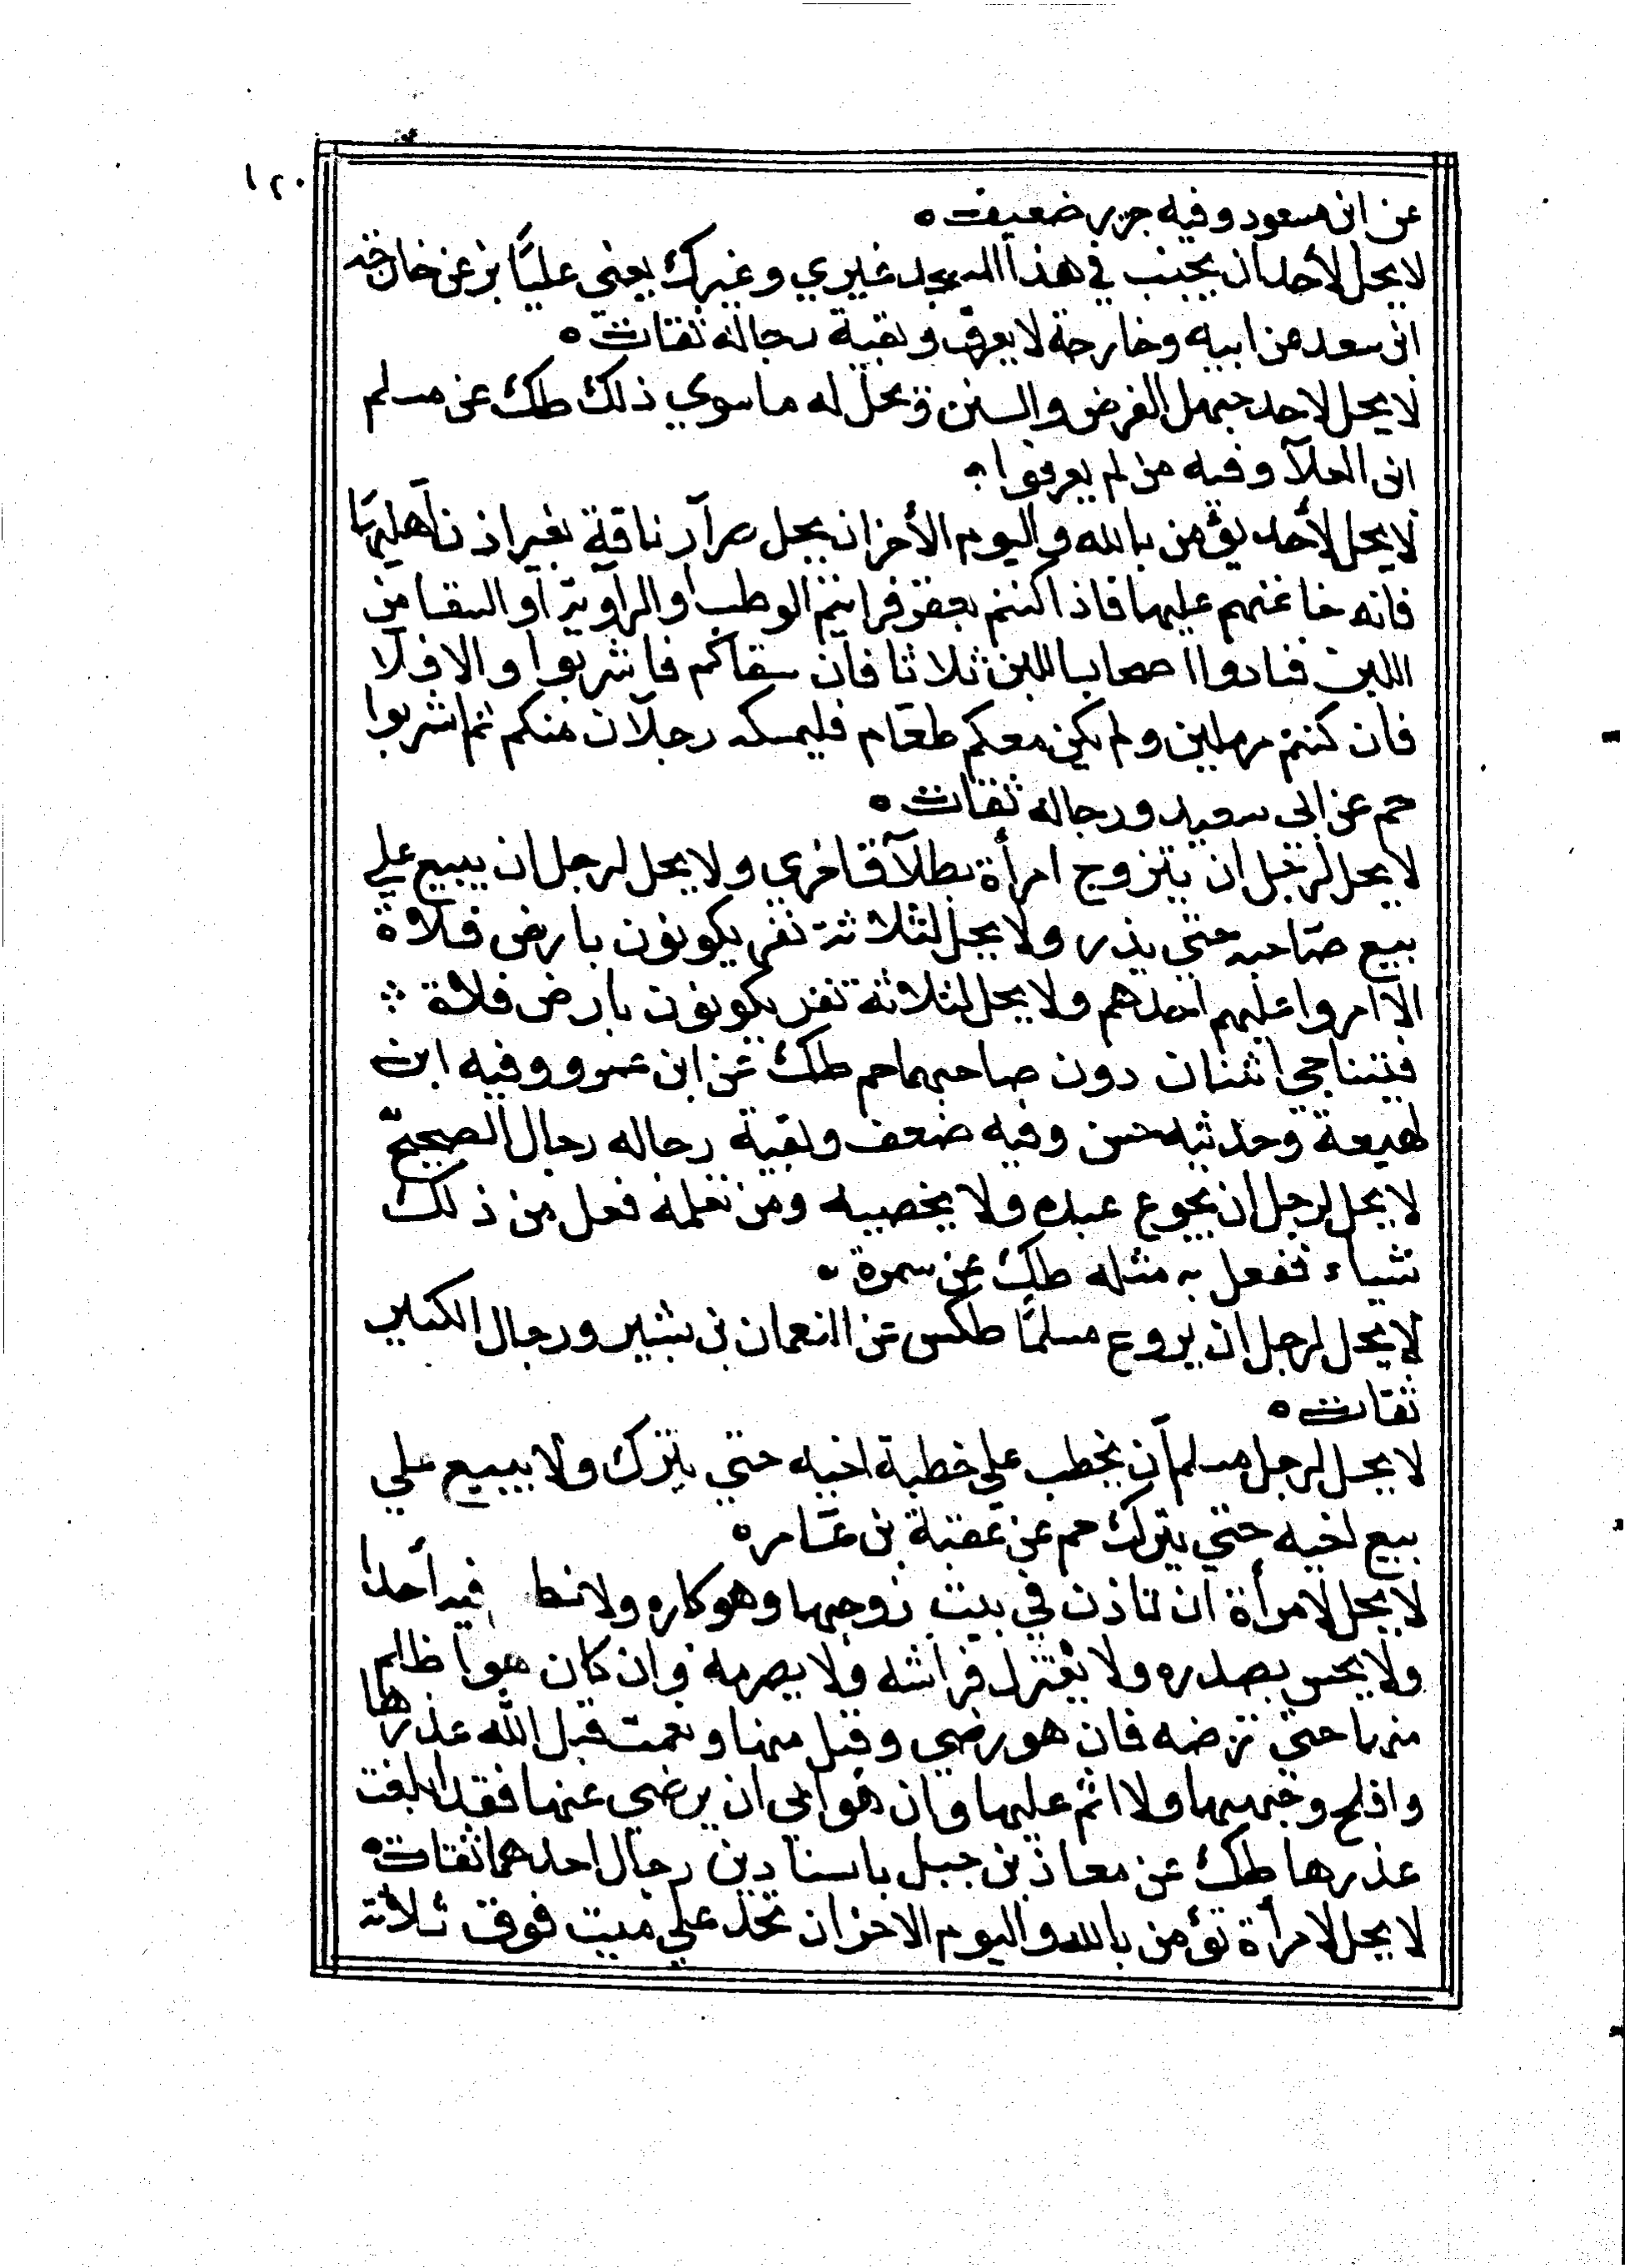 ١٢٠
عن ابن مسعود وفيه جرير ضعيف ه
لا يحل لأحد ان يجنب في هذا المسجد غيري وغيرك يعني عليًا بز عن خارجة
ابن سعد عن ابيه وخارجة لا يعرف وبقية رجاله ثقات ه
لا يحل لاحد جهل الفرض والسنن ويحل له ما سوي ذلك طك عن مسلم
ابن العلآ وفيه من لم يعرفوا ه
لا يحل لأحد يؤمن بالله واليوم الأخر ان يحل صرآر ناقة بغير اذن أهليها
فانه خاتمهم عليها فاذا كنتم بقفر فرايتم الوطب او الراوية او السقا من
اللبن فنادوا اصحاب اللبن ثلاثا فان سقاكم فاشربوا والا فلا
فان كنتم مرملين ولم يكن معكم طعام فليمسكه رجلان منكم ثم اشربوا
حم عن ابي سعيد ورجاله ثقات ه
لا يحل لرجل ان يتزوج امرأة بطلآق اخري ولا يحل لرجل ان يبيع علي
بيع صاحبه حتي يذر ولا يحل لثلاثة نفر يكونون بارض فلاة
الا امروا عليهم احدهم ولا يحل لثلاثة نفر يكونون بارض فلاة
فيتناجي اثنان دون صاحبهما حم طك عن ابن عمرو وفيه ابن
لهيعة وحديثه حسن وفيه ضعف وبقية رجاله رجال الصحيح ه
لا يحل لرجل ان يجوع عبده ولا يخصيه ومن نعلمه فعل من ذلك
شياء نفعل به مثله طك عن سمرة ه
لا يحل لرجل ان يروع مسلمًا طكس عن النعمان بن بشير ورجال الكبير
ثقات ه
لا يحل لرجل مسلم أن يخطب علي خطبة اخيه حتي يترك ولا يبيع علي
بيع اخيه حتي يترك حم عن عقبة بن عامر ه
لا يحل لامرأة ان تاذن في بيت زوجها وهو كاره ولا فيه أحدا
ولا بصدره ولا تعتزل فراشه ولا يصرمه وان كان هو اظلم
منها حتي ترضه فان هو رضي وقبل منها ونعمت قبل الله عذرها
وافلح ولا اثم عليها وان هو ابي ان يرضي عنها فقد ابلغت
عذرها طك عن معاذ بن جبل باسنادين رجال احدهما ثقات ه
لا يحل لامرأة تؤمن بالله واليوم الاخر ان تحد علي ميت فوق ثلاثة